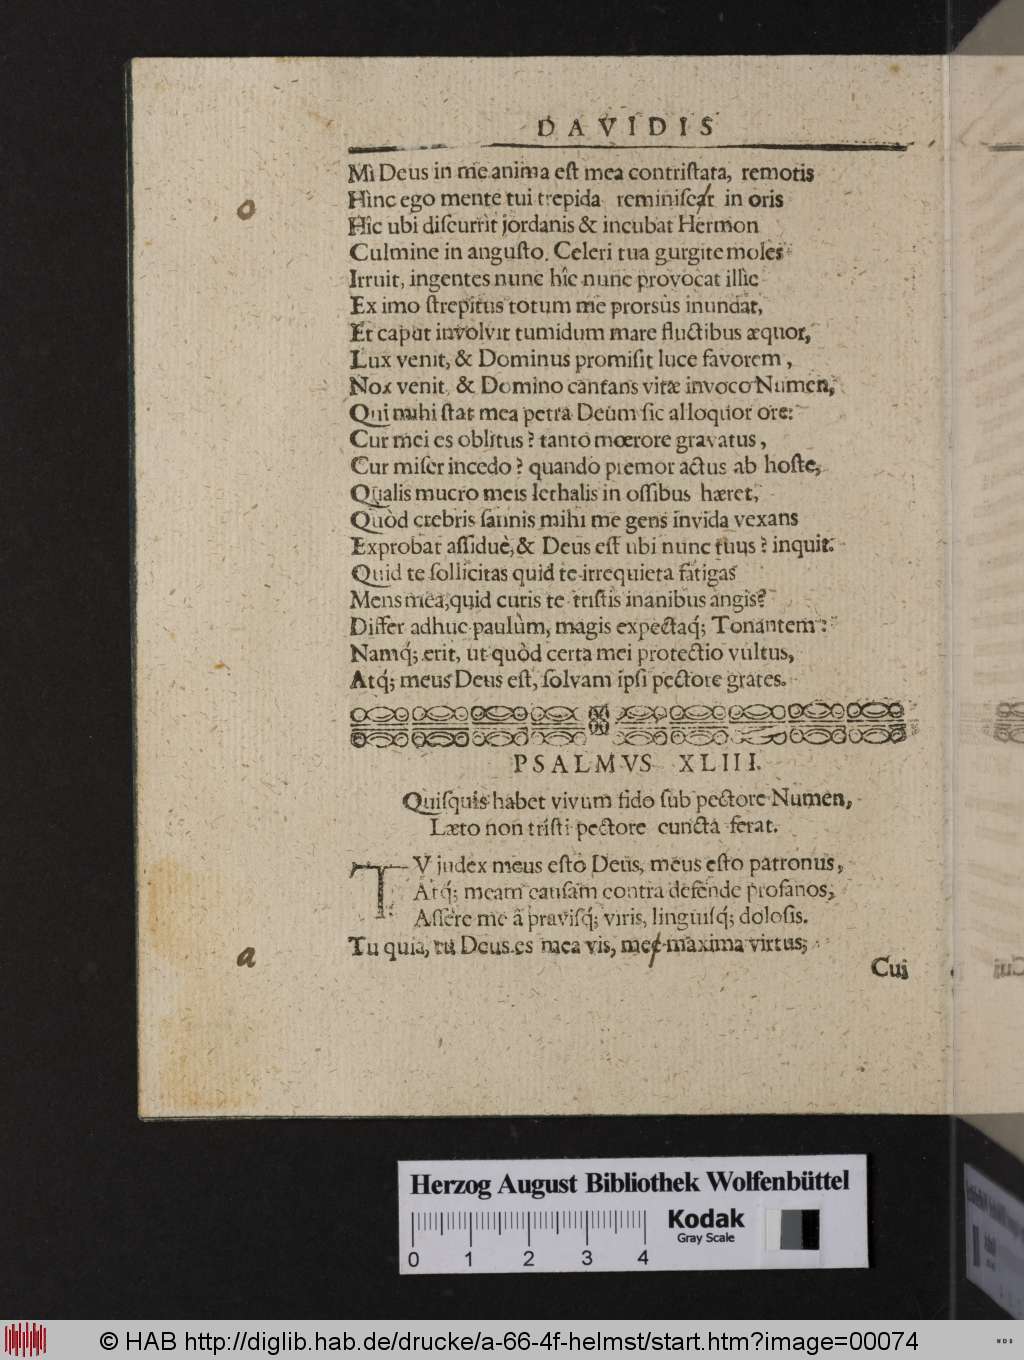 DAVIDIS
Mî Deus in me anima eſt mea contriſtata, remotis
Hinc ego mente tui trepida reminiſcar in oris
o
Hîc ubi diſcurrit jordanis & incubat Hermon
Culmine in anguſto. Celeri tua gurgite moles
Irruit, ingentes nunc hîc nunc provocat illîc
Ex imo ſtrepitus totum me prorsùs inundat,
Et caput involvit tumidum mare fluctibus æquor,
Lux venit, & Dominus promiſit luce favorem,
Nox venit, & Domino cantans vitæ invoco Numen,
Qui mihi ſtat mea petra Deûm ſic alloquor ore:
Cur mei es oblitus? tantô mœrore gravatus,
Cur miſer incedo? quando premor actus ab hoſte,
Qualis mucro meis lethalis in oſſibus hæret,
Quòd crebris ſannis mihi me gens invida vexans
Exprobat aſſiduè, & Deus eſt ubi nunc tuus? inquit.
Quid te ſollicitas quid te irrequieta fatigas
Mens mea, quid curis te triſtis inanibus angis?
Differ adhuc paulùm, magis expectaq́; Tonantem:
Namq́; erit, ut quòd certa mei protectio vultus,
Atq́; meus Deus eſt, ſolvam ipſi pectore grates.
PSALMVS XLIII.
Quiſquis habet vivum fido ſub pectore Numen,
Læto non triſti pectore cuncta ferat.
TV judex meus eſto Deus, meus eſto patronus,
Atq́; meam cauſam contra defende profanos,
Aſſere me â praviſq́; viris, linguiſq́; doloſis.
a
Tu quia, tu Deus es mea vis, mea maxima virtus;
Cui
Herzog August Bibliothek Wolfenbüttel
Kodak
Gray Scale
0 1 2 3 4
© HAB http://diglib.hab.de/drucke/a-66-4f-helmst/start.htm?image=00074